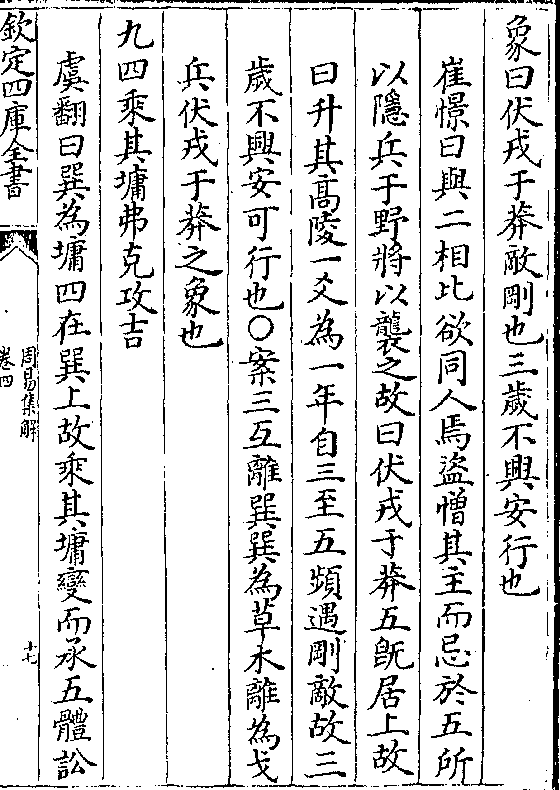 象曰伏戎于莽敵剛也三歲不興安行也
崔憬曰與二相比欲同人焉盜憎其主而忌於五所
以隱兵于野將以襲之故曰伏戎于莽五既居上故
曰升其高陵一爻為一年自三至五頻遇剛敵故三
歲不興安可行也○案三互離巽巽為草木離為戈
兵伏戎于莽之象也
九四乘其墉弗克攻吉
虞翻曰巽為墉四在巽上故乘其墉變而承五體訟
欽定四庫全書
周易集解
卷四
十七